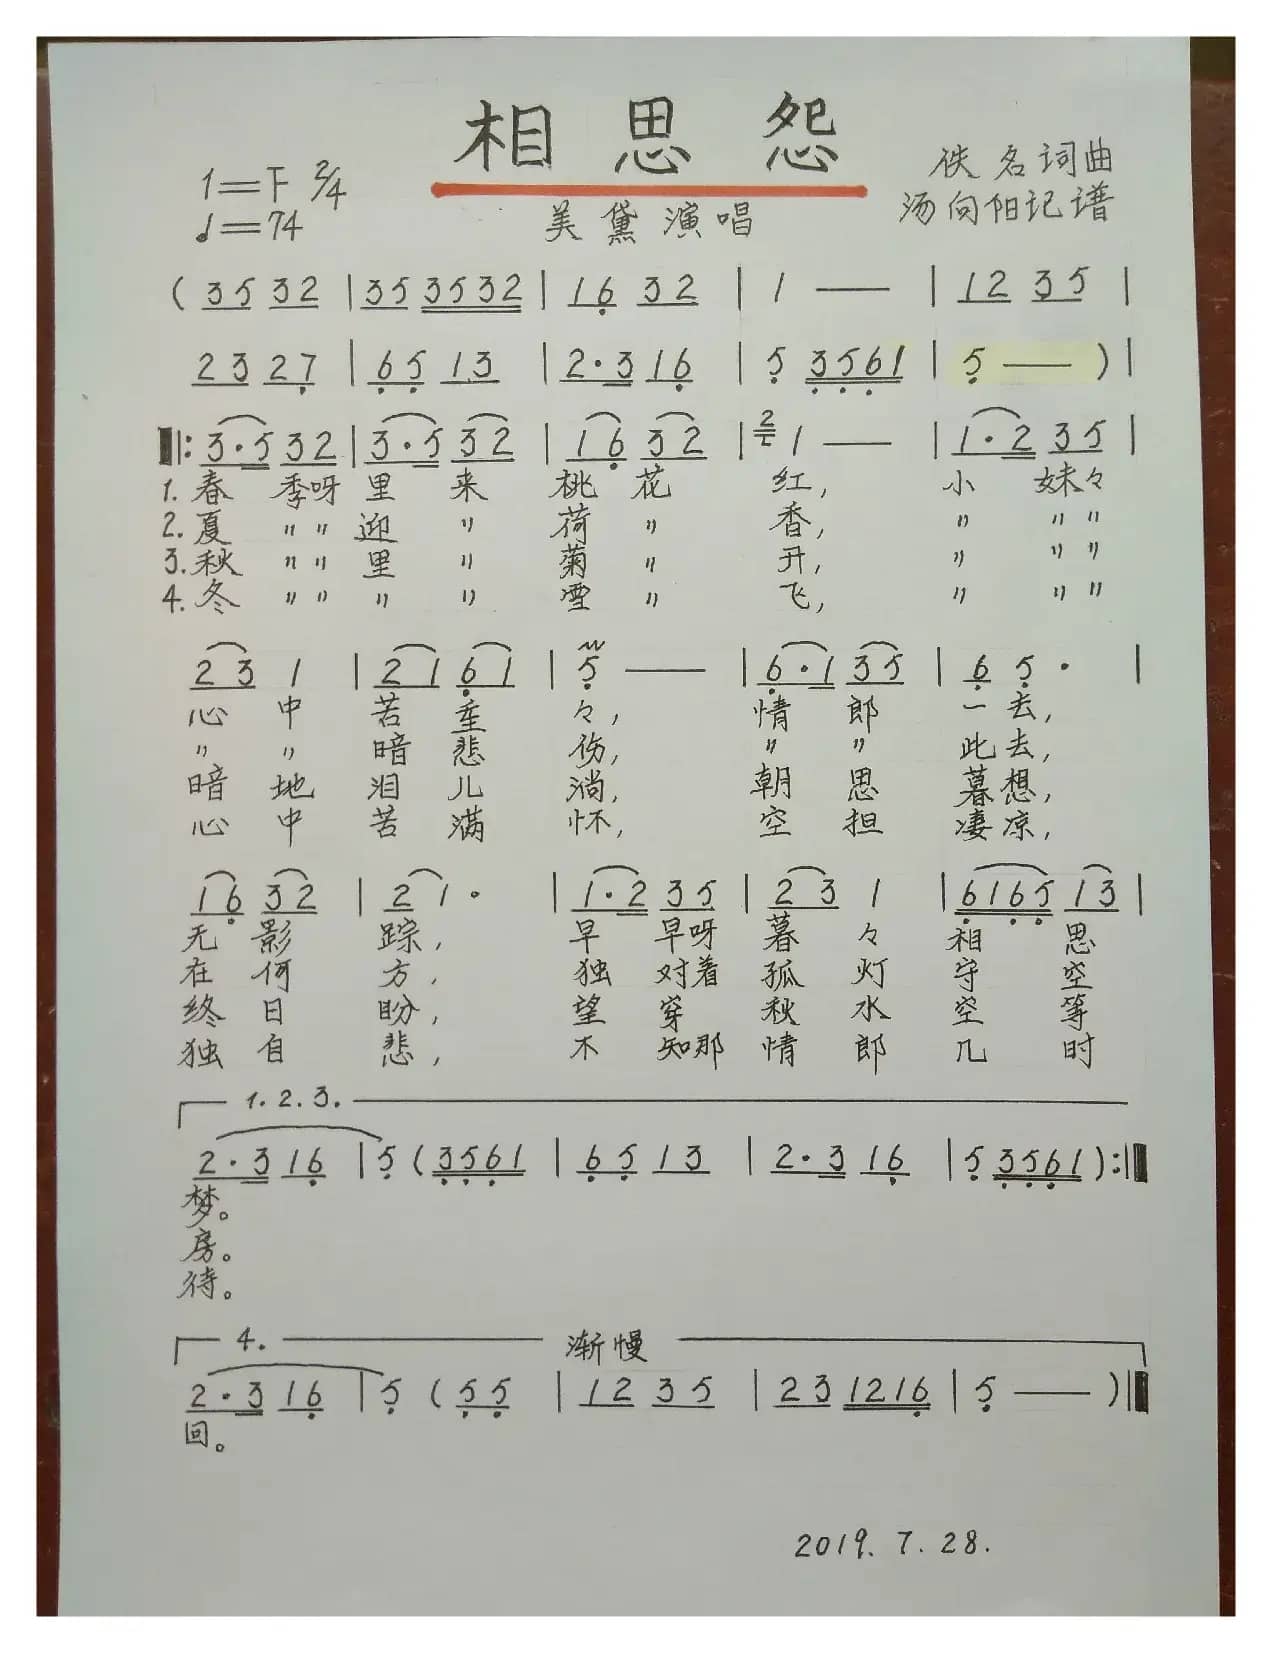 相思怨
1=F 2/4
♩=74
美黛演唱
佚名词曲
汤向阳记谱
( 35 32 | 35 3532 | 16 32 | 1 — | 12 35 |
23 27 | 65 13 | 2·3 16 | 5 3561 | 5 — ) |
‖: 3·5 32 | 3·5 32 | 16 32 | 2 1 — | 1·2 35 |
1. 春 季呀 里 来 桃 花 红, 小 妹々
2. 夏 〃〃 迎 〃 荷 〃 香, 〃 〃〃
3. 秋 〃〃 里 〃 菊 〃 开, 〃 〃〃
4. 冬 〃〃 〃 〃 雪 〃 飞, 〃 〃〃
23 1 | 21 61 | 5 — | 6·1 35 | 6 5· |
心 中 苦 重 々, 情 郎 一 去,
〃 〃 暗 悲 伤, 〃 〃 此 去,
暗 地 泪 儿 淌, 朝 思 暮 想,
心 中 苦 满 怀, 空 担 凄 凉,
16 32 | 2 1· | 1·2 35 | 23 1 | 6165 13 |
无 影 踪, 早 早呀 暮 々 相 思
在 何 方, 独 对着 孤 灯 守 空
终 日 盼, 望 穿 秋 水 空 等
独 自 悲, 不 知那 情 郎 几 时
1.2.3.
2·3 16 | 5 ( 3561 | 65 13 | 2·3 16 | 5 3561 ) :‖
梦。
房。
待。
4. 渐慢
2·3 16 | 5 ( 55 | 12 35 | 23 1216 | 5 — ) ‖
回。
2019.7.28.